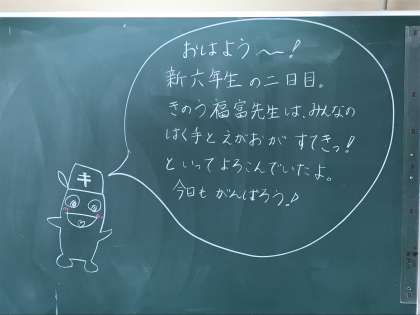 おはよう～！
新六年生の二日目。
きのう福富先生は、みんなの
はく手とえがおがすてきっ！
といってよろこんでいたよ。
今日もがんばろう♪
キ